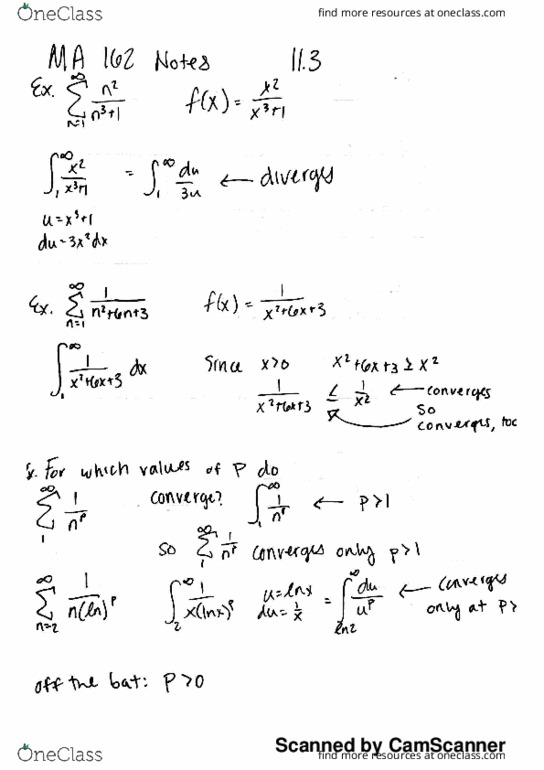 OneClass find more resources at oneclass.com
MA 162 Notes 11.3
Ex. ∞ Σ n=1 n²/n³+1 f(x) = x²/x³+1
∫₁^∞ x²/x³+1 = ∫₁^∞ du/3u ← diverges
u=x³+1
du=3x²dx
Ex. ∞ Σ n=1 1/n²+6n+3 f(x) = 1/x²+6x+3
∫₁^∞ 1/x²+6x+3 dx Since x>0 x²+6x+3 ≥ x²
1/x²+6x+3 ≤ 1/x² ← converges
so
converges, too
Ex. For which values of P do
∞ Σ 1 1/nᴾ converge? ∫₁^∞ 1/nᴾ ← P>1
so ∞ Σ 1 1/nᴾ converges only p>1
∞ Σ n=2 1/n(ln)ᴾ ∫₂^∞ 1/x(lnx)ᴾ u=lnx du=1/x = ∫ln2^∞ du/uᴾ ← converges
only at P>
off the bat: P>0
Scanned by CamScanner
OneClass find more resources at oneclass.com